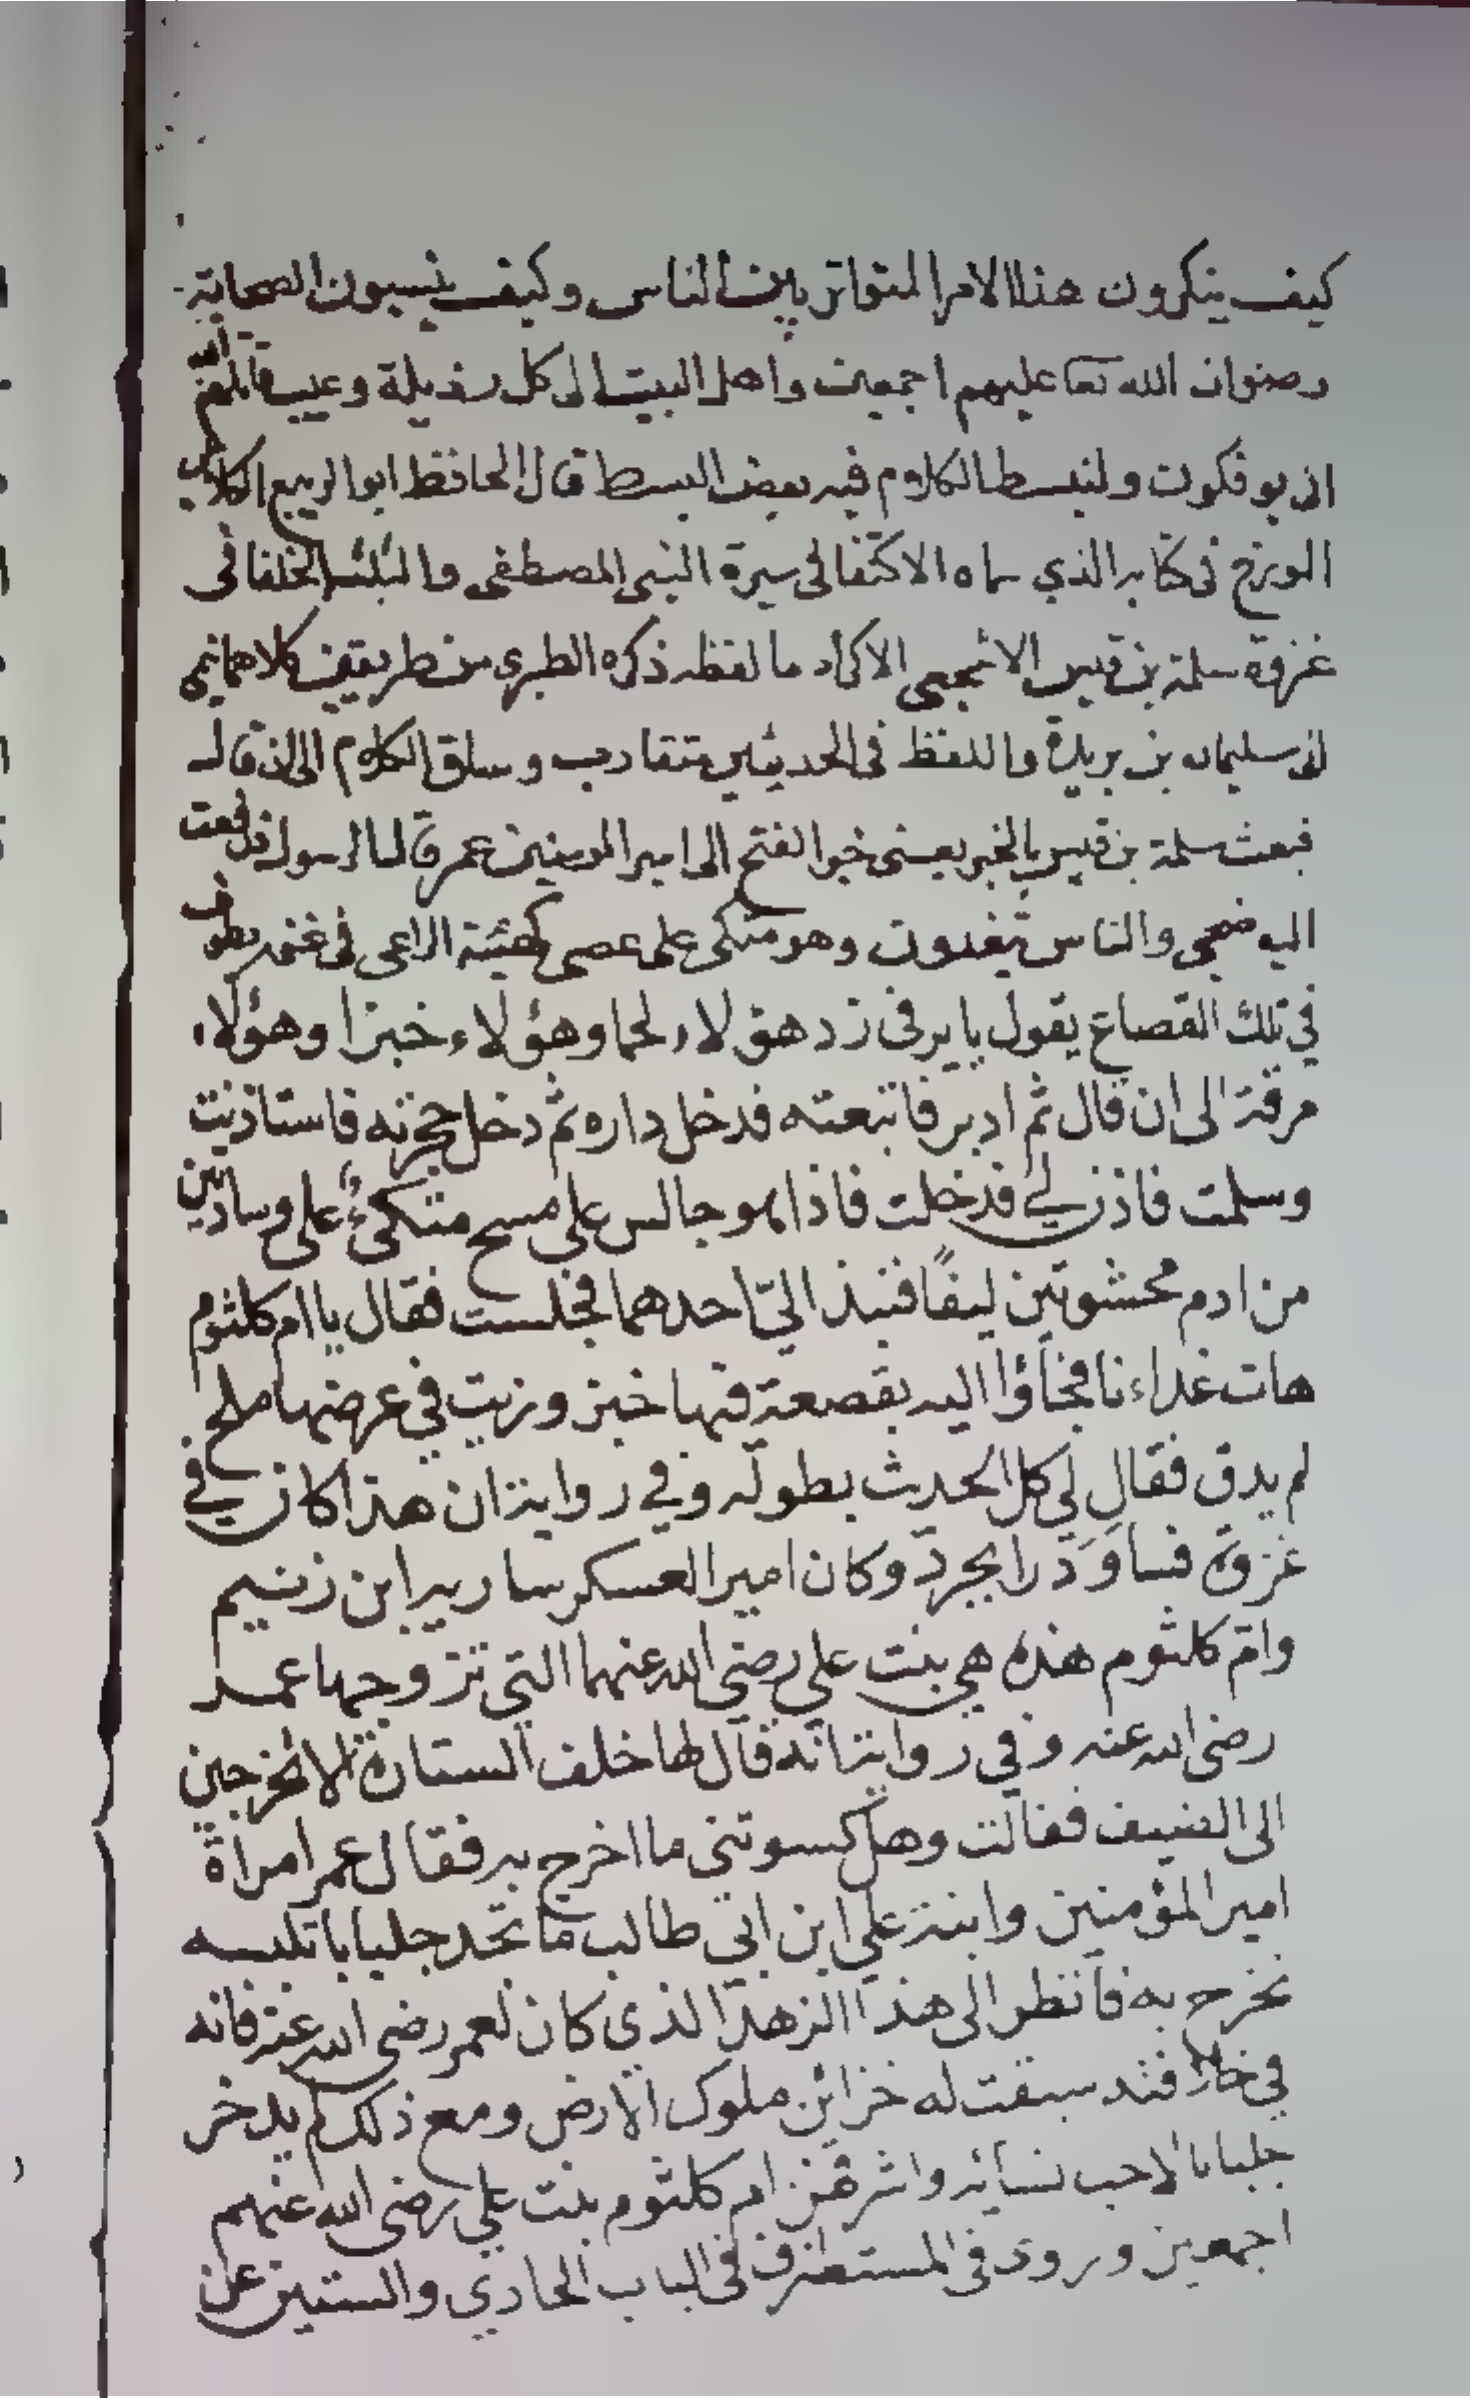 كيف ينكرون هذا الامر المتواتر بين الناس وكيف ينسبون الصحابة
رضوان الله تعا عليهم اجمعين واهل البيت الى كل رذيلة وعيب قاتلهم الله
انى يوفكون ولنبسط الكلام فيه بعض البسط قال الحافظ ابو الربيع الكلاعى
المورخ فى كتابه الذي سماه الاكتفا فى سيرة النبى المصطفى والثلثة الخلفا فى
غزوة سلمة بن قيس الاشجعى الاكراد ما لفظه ذكره الطبرى من طريقين كلاهما ينمى
الى سليمان بن بريدة واللفظ فى الحديثين متقارب وساق الكلام الى ان قال
فبعث سلمة بن قيس بالخبر يعنى خبر الفتح الى امير المومنين عمر قال الرسول فدفعت
اليه ضحى والناس يتغدون وهو متكى على عصى كهيئة الراعى فى غنمه يطوف
في تلك القصاع يقول يا يرفى زد هؤلاء لحما وهؤلاء خبزا وهؤلاء
مرقة الى ان قال ثم ادبر فاتبعته فدخل داره ثم دخل حجرته فاستاذنت
وسلمت فاذن لي فدخلت فاذا هو جالس على مسح متكئ على وسادتين
من ادم محشوتين ليفًا فنبذ اليّ احدهما فجلست فقال يا ام كلثوم
هات غداءنا فجاؤا اليه بقصعة فيها خبز وزيت في عرضها ملح
لم يدق فقال لي كل الحديث بطوله وفي رواية ان هذا كان في
غزوة فسا وَدَرا بجرد وكان امير العسكر سارية ابن زنيم
وامّ كلثوم هذه هي بنت علي رضي الله عنهما التي تزوجها عمر
رضى الله عنه وفي رواية انه قال لها خلف الستارة الا تخرجين
الى الضيف فقالت وهل كسوتنى ما اخرج به فقال عمر امراة
امير المؤمنين وابنة علي ابن ابي طالب ما تجد جلبابا تلبسه
تخرج به فانظر الى هذا الزهد الذي كان لعمر رضى الله عنه فانه
في خلافته سبقت له خزائن ملوك الارض ومع ذلك لم يدخر
جلبابا لاحب نسائه واشرفهن ام كلثوم بنت علي رضى الله عنهم
اجمعين وروى فى المستطرف فى الباب الحادي والستين عن